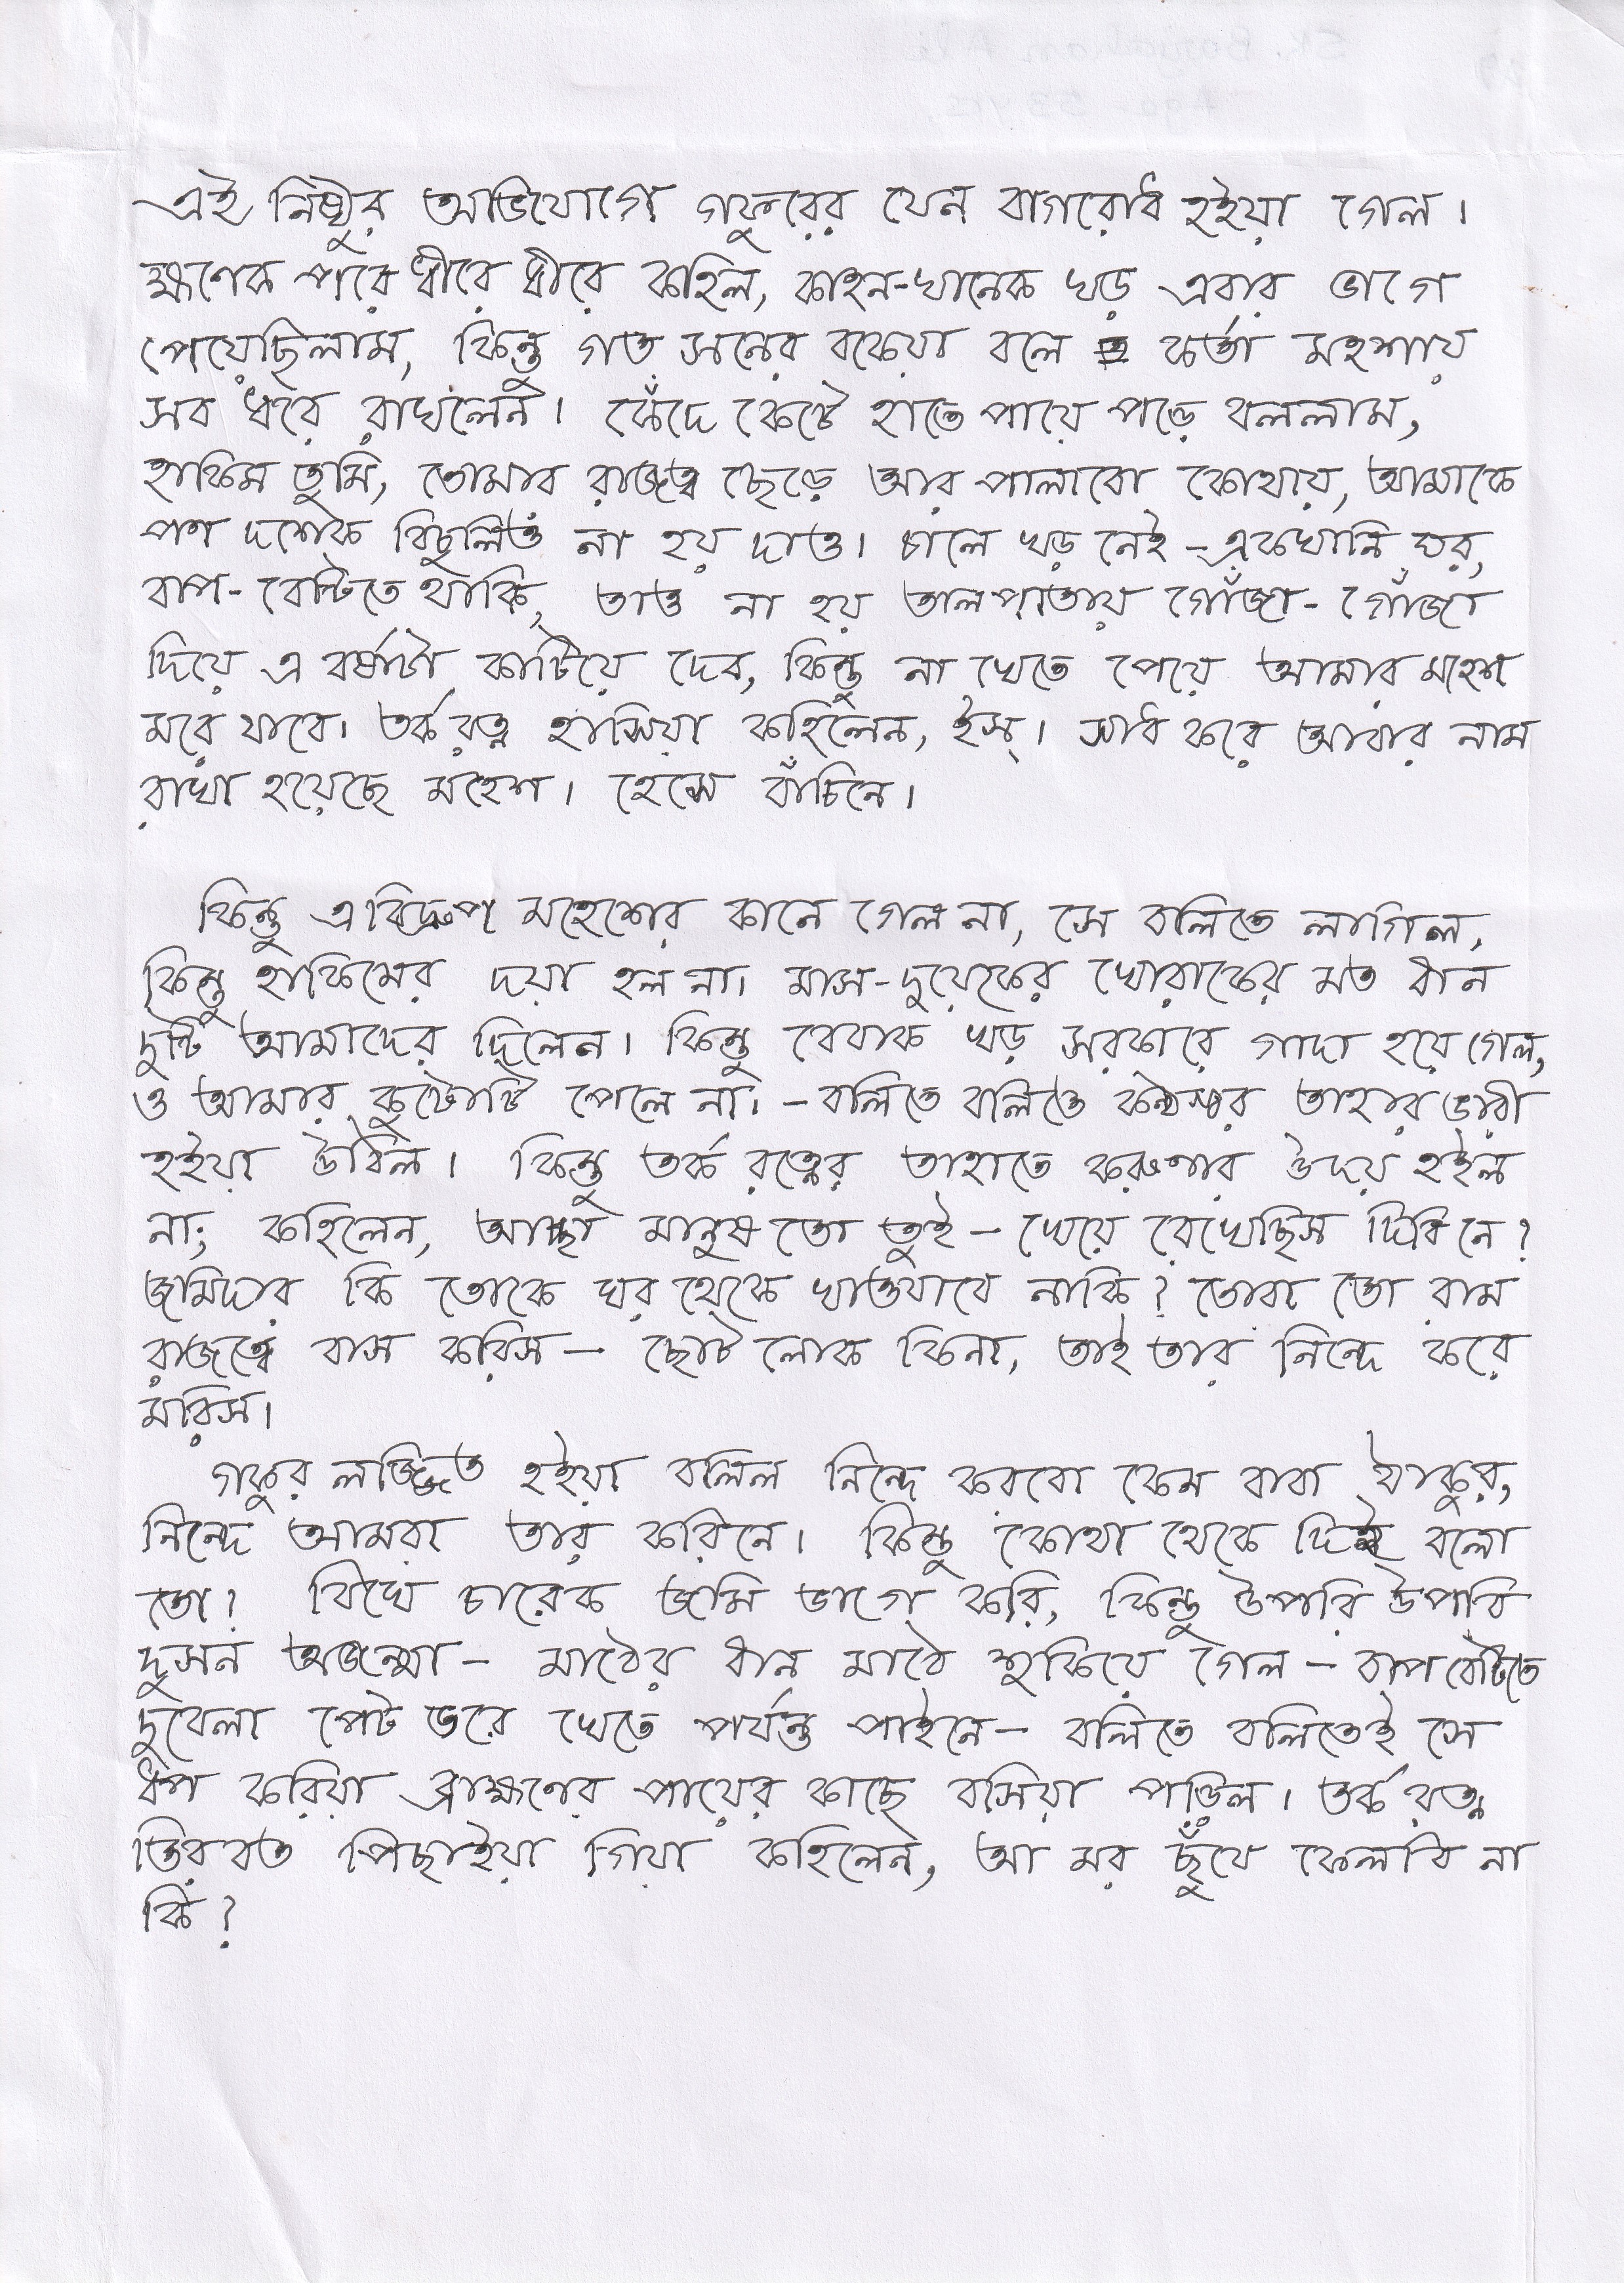 এই নিষ্ঠুর অভিযোগে গফুরের যেন বাগরোধ হইয়া গেল।
ক্ষণেক পরে ধীরে ধীরে কহিল, কাহন-খানেক খড় এবার ভাগে
পেয়েছিলাম, কিন্তু গত সনের বকেয়া বলে কর্তা মহশায়
সব ধরে রাখলেন। কেঁদে কেটে হাতে পায়ে পড়ে বললাম,
হাকিম তুমি, তোমার রাজত্ব ছেড়ে আর পালাবো কোথায়, আমাকে
পণ দশেক বিচুলিও না হয় দাও। চালে খড় নেই - একখানি ঘর,
বাপ-বেটিতে থাকি, তাও না হয় তালপাতায় গোঁজা-গোঁজা
দিয়ে এ বর্ষাটা কাটিয়ে দেব, কিন্তু না খেতে পেয়ে আমার মহেশ
মরে যাবে। তর্করত্ন হাসিয়া কহিলেন, ইস্। সাধ করে আবার নাম
রাখা হয়েছে মহেশ। হেসে বাঁচিনে।
কিন্তু এ বিদ্রুপ মহেশের কানে গেল না, সে বলিতে লাগিল,
কিন্তু হাকিমের দয়া হল না। মাস-দুয়েকের খোরাকের মত ধান
দুটি আমাদের দিলেন। কিন্তু বেবাক খড় সরকারে গাদা হয়ে গেল,
ও আমার কুটোটি পেলে না। - বলিতে বলিতে কন্ঠস্বর তাহার ভারী
হইয়া উঠিল। কিন্তু তর্ক রত্নের তাহাতে করুণার উদয় হইল
না; কহিলেন, আচ্ছা মানুষ তো তুই - খেয়ে রেখেছিস দিবি নে?
জমিদার কি তোকে ঘর থেকে খাওয়াবে নাকি? তোরা তো রাম
রাজত্বে বাস করিস - ছোট লোক কিনা, তাই তার নিন্দে করে
মরিস।
গফুর লজ্জিত হইয়া বলিল নিন্দে করবো কেন বাবা ঠাকুর,
নিন্দে আমরা তার করিনে। কিন্তু কোথা থেকে দিই বলো
তো? বিঘে চারেক জমি ভাগে করি, কিন্তু উপরি উপরি
দুসন অজন্মা - মাঠের ধান মাঠে শুকিয়ে গেল - বাপবেটিতে
দুবেলা পেট ভরে খেতে পর্যন্ত পাইনে - বলিতে বলিতেই সে
ধপ করিয়া ব্রাহ্মণের পায়ের কাছে বসিয়া পড়িল। তর্ক রত্ন
তিরবত পিছাইয়া গিয়া কহিলেন, আ মর ছুঁয়ে ফেলবি না
কি?